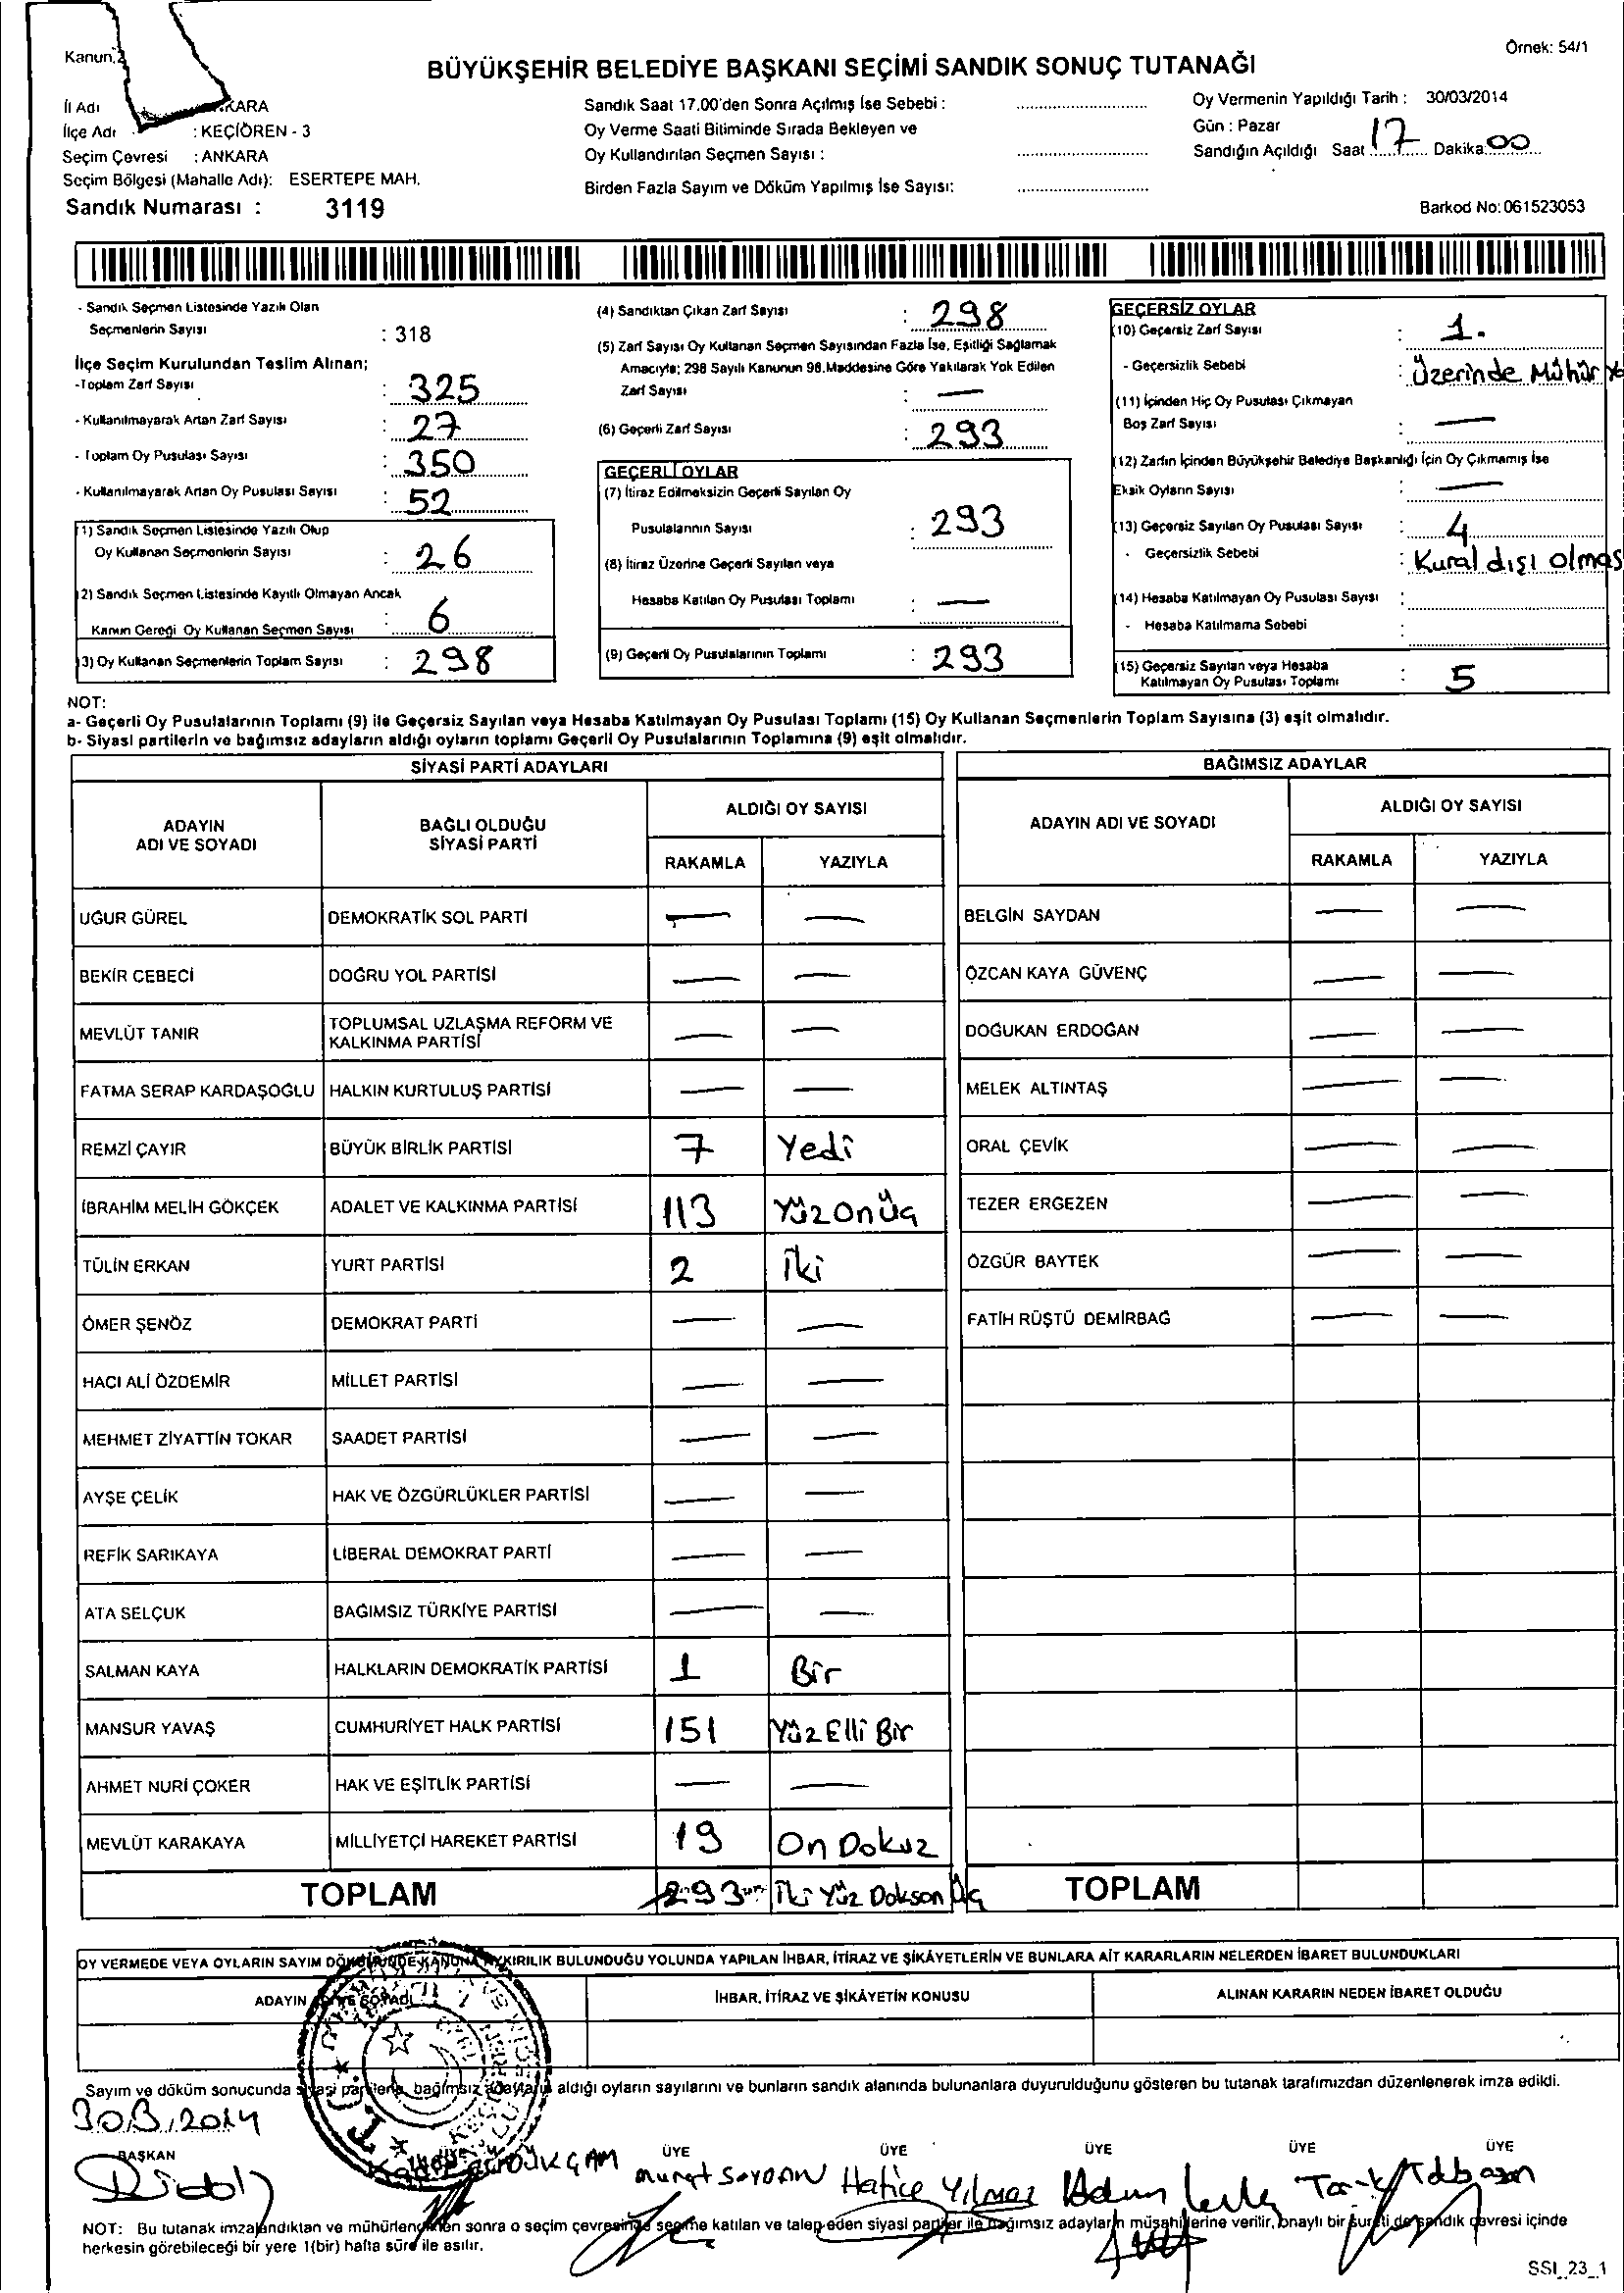 Kanun: 2
Örnek: 54/1
BÜYÜKŞEHİR BELEDİYE BAŞKANI SEÇİMİ SANDIK SONUÇ TUTANAĞI
İl Adı ANKARA
İlçe Adı : KEÇİÖREN - 3
Seçim Çevresi : ANKARA
Seçim Bölgesi (Mahalle Adı): ESERTEPE MAH.
Sandık Numarası : 3119
Sandık Saat 17.00'den Sonra Açılmış İse Sebebi :
Oy Verme Saati Bitiminde Sırada Bekleyen ve
Oy Kullandırılan Seçmen Sayısı :
Birden Fazla Sayım ve Döküm Yapılmış İse Sayısı:
Oy Vermenin Yapıldığı Tarih : 30/03/2014
Gün : Pazar
Sandığın Açıldığı Saat 17 Dakika 00
Barkod No: 061523053
- Sandık Seçmen Listesinde Yazılı Olan
Seçmenlerin Sayısı : 318
İlçe Seçim Kurulundan Teslim Alınan;
-Toplam Zarf Sayısı : 325
- Kullanılmayarak Artan Zarf Sayısı : 27
- Toplam Oy Pusulası Sayısı : 350
- Kullanılmayarak Artan Oy Pusulası Sayısı : 52
(1) Sandık Seçmen Listesinde Yazılı Olup
Oy Kullanan Seçmenlerin Sayısı : 26
(2) Sandık Seçmen Listesinde Kayıtlı Olmayan Ancak
Kanun Gereği Oy Kullanan Seçmen Sayısı : 6
(3) Oy Kullanan Seçmenlerin Toplam Sayısı : 298
(4) Sandıktan Çıkan Zarf Sayısı : 298
(5) Zarf Sayısı Oy Kullanan Seçmen Sayısından Fazla İse, Eşitliği Sağlamak
Amacıyla; 298 Sayılı Kanunun 98.Maddesine Göre Yakılarak Yok Edilen
Zarf Sayısı : —
(6) Geçerli Zarf Sayısı : 293
GEÇERLİ OYLAR
(7) İtiraz Edilmeksizin Geçerli Sayılan Oy
Pusulalarının Sayısı : 293
(8) İtiraz Üzerine Geçerli Sayılan veya
Hesaba Katılan Oy Pusulası Toplamı : —
(9) Geçerli Oy Pusulalarının Toplamı : 293
GEÇERSİZ OYLAR
(10) Geçersiz Zarf Sayısı : 1.
- Geçersizlik Sebebi : Üzerinde Mühür
(11) İçinden Hiç Oy Pusulası Çıkmayan
Boş Zarf Sayısı : —
(12) Zarfın İçinden Büyükşehir Belediye Başkanlığı İçin Oy Çıkmamış İse
Eksik Oyların Sayısı : —
(13) Geçersiz Sayılan Oy Pusulası Sayısı : 4
- Geçersizlik Sebebi : Kural dışı olmas
(14) Hesaba Katılmayan Oy Pusulası Sayısı :
- Hesaba Katılmama Sebebi :
(15) Geçersiz Sayılan veya Hesaba
Katılmayan Oy Pusulası Toplamı : 5
NOT:
a- Geçerli Oy Pusulalarının Toplamı (9) ile Geçersiz Sayılan veya Hesaba Katılmayan Oy Pusulası Toplamı (15) Oy Kullanan Seçmenlerin Toplam Sayısına (3) eşit olmalıdır.
b- Siyasi partilerin ve bağımsız adayların aldığı oyların toplamı Geçerli Oy Pusulalarının Toplamına (9) eşit olmalıdır.
SİYASİ PARTİ ADAYLARI
ADAYIN ADI VE SOYADI BAĞLI OLDUĞU SİYASİ PARTİ ALDIĞI OY SAYISI
RAKAMLA YAZIYLA
UĞUR GÜREL DEMOKRATİK SOL PARTİ — —
BEKİR CEBECİ DOĞRU YOL PARTİSİ — —
MEVLÜT TANIR TOPLUMSAL UZLAŞMA REFORM VE KALKINMA PARTİSİ — —
FATMA SERAP KARDAŞOĞLU HALKIN KURTULUŞ PARTİSİ — —
REMZİ ÇAYIR BÜYÜK BİRLİK PARTİSİ 7 Yedi
İBRAHİM MELİH GÖKÇEK ADALET VE KALKINMA PARTİSİ 113 Yüz Onüç
TÜLİN ERKAN YURT PARTİSİ 2 İki
ÖMER ŞENÖZ DEMOKRAT PARTİ — —
HACI ALİ ÖZDEMİR MİLLET PARTİSİ — —
MEHMET ZİYATTİN TOKAR SAADET PARTİSİ — —
AYŞE ÇELİK HAK VE ÖZGÜRLÜKLER PARTİSİ — —
REFİK SARIKAYA LİBERAL DEMOKRAT PARTİ — —
ATA SELÇUK BAĞIMSIZ TÜRKİYE PARTİSİ — —
SALMAN KAYA HALKLARIN DEMOKRATİK PARTİSİ 1 Bir
MANSUR YAVAŞ CUMHURİYET HALK PARTİSİ 151 Yüz Elli Bir
AHMET NURİ ÇOKER HAK VE EŞİTLİK PARTİSİ — —
MEVLÜT KARAKAYA MİLLİYETÇİ HAREKET PARTİSİ 19 On Dokuz
TOPLAM 293 İki Yüz Dokson Üç
BAĞIMSIZ ADAYLAR
ADAYIN ADI VE SOYADI ALDIĞI OY SAYISI
RAKAMLA YAZIYLA
BELGİN SAYDAN — —
ÖZCAN KAYA GÜVENÇ — —
DOĞUKAN ERDOĞAN — —
MELEK ALTINTAŞ — —
ORAL ÇEVİK — —
TEZER ERGEZEN — —
ÖZGÜR BAYTEK — —
FATİH RÜŞTÜ DEMİRBAĞ — —
TOPLAM
OY VERMEDE VEYA OYLARIN SAYIM DÖKÜMÜNDE KANUNA AYKIRILIK BULUNDUĞU YOLUNDA YAPILAN İHBAR, İTİRAZ VE ŞİKÂYETLERİN VE BUNLARA AİT KARARLARIN NELERDEN İBARET BULUNDUKLARI
ADAYIN ADI VE SOYADI İHBAR, İTİRAZ VE ŞİKÂYETİN KONUSU ALINAN KARARIN NEDEN İBARET OLDUĞU
Sayım ve döküm sonucunda siyasi partilerin, bağımsız adayların aldığı oyların sayılarını ve bunların sandık alanında bulunanlara duyurulduğunu gösteren bu tutanak tarafımızdan düzenlenerek imza edildi.
30.3.2014
BAŞKAN ÜYE ÜYE ÜYE ÜYE ÜYE ÜYE
Murat SAYDAN Hatice Yılmaz
NOT: Bu tutanak imzalandıktan ve mühürlendikten sonra o seçim çevresinde seçime katılan ve talep eden siyasi partiler ile bağımsız adayların müşahitlerine verilir, onaylı bir sureti de sandık çevresi içinde
herkesin görebileceği bir yere 1(bir) hafta süre ile asılır.
SSI_23_1